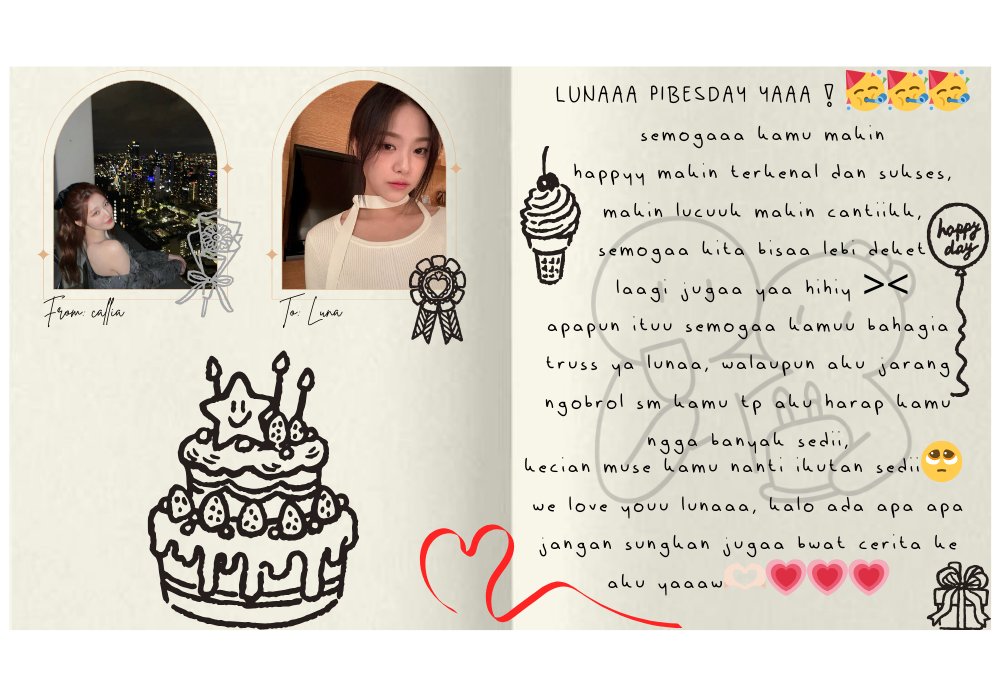 From: callia
To: Luna
LUNAAA PIBESDAY YAAA ! 🥳🥳🥳
semogaaa kamu makin
happyy makin terkenal dan sukses,
makin lucuuk makin cantiikk,
semogaa kita bisaa lebi deket
laagi jugaa yaa hihiy ><
apapun ituu semogaa kamuu bahagia
truss ya lunaa, walaupun aku jarang
ngobrol sm kamu tp aku harap kamu
ngga banyak sedii,
kecian muse kamu nanti ikutan sedii🥺
we love youu lunaaa, kalo ada apa apa
jangan sungkan jugaa bwat cerita ke
aku yaaaw🫶🏻💗💗💗
happy
day